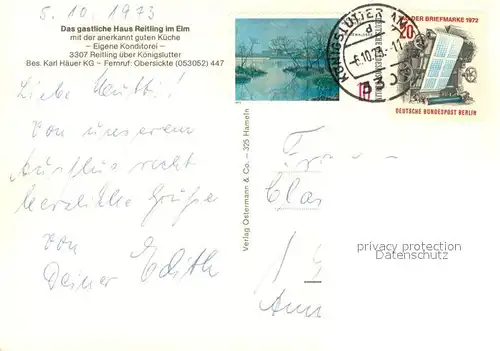 5.10.1973
Das gastliche Haus Reitling im Elm
mit der anerkannt guten Küche
– Eigene Konditorei –
3307 Reitling über Königslutter
Bes. Karl Häuer KG – Fernruf: Obersickte (053052) 447
Liebe Mutti!
Von unserem
Ausflug recht
herzliche Grüße
von
Deiner Edith
Verlag Ostermann & Co. – 325 Hameln
KÖNIGSLUTTER
-6.10.73-11
10
DEUTSCHE BUNDESPOST BERLIN
TAG DER BRIEFMARKE 1972
20
DEUTSCHE BUNDESPOST BERLIN
privacy protection
Datenschutz